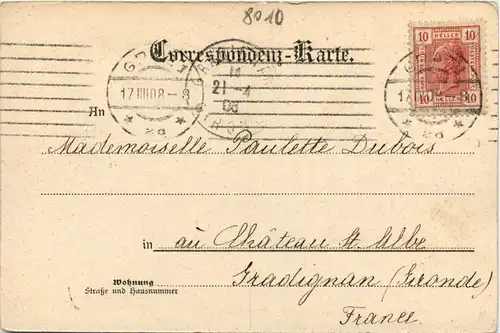 8010
Correspondenz-Karte.
10 HELLER 10
10 HELLER 10
17 III 08 - 8
21 - 4
08
An
Mademoiselle Paulette Dubois
in au Château St. Albe
Wohnung
Straße und Hausnummer
Gradignan (Gironde)
France.